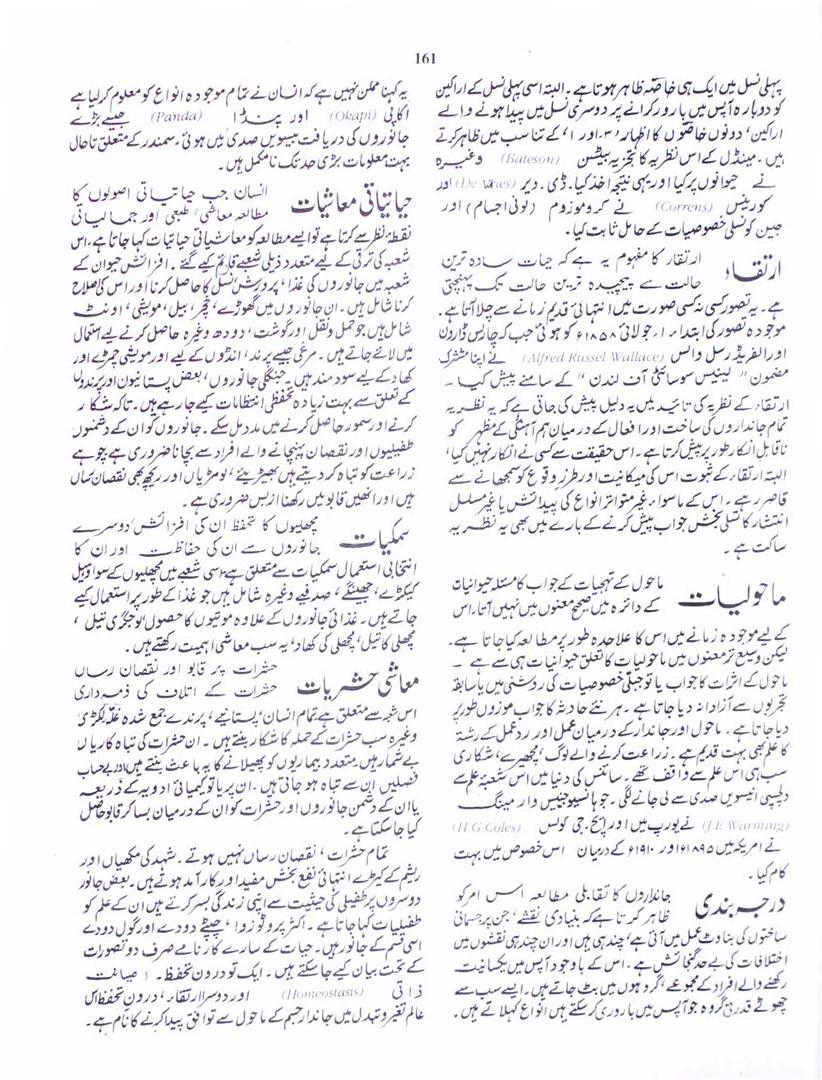 161
پہلی نسل میں ایک ہی خاصّہ ظاہر ہوتا ہے۔ البتہ اسی پہلی نسل کے اراکین
کو دوبارہ آپس میں بارور کرانے پر دوسری نسل میں پیدا ہونے والے
اراکین، دونوں خاصّوں کا اظہار '۳' اور '۱' کے تناسب میں ظاہر کرتے
ہیں۔ مینڈل کے اس نظریہ کا تجزیہ بیٹسن (Bateson) وغیرہ
نے حیوانوں پر کیا اور یہی نتیجہ اخذ کیا۔ ڈی۔ ویر (De Vries) اور
کورینس (Correns) نے کروموزوم (لونی اجسام) اور
جین کو نسلی خصوصیات کے حامل ثابت کیا۔
ارتقاء
ارتقاء کا مفہوم یہ ہے کہ حیات سادہ ترین
حالت سے پیچیدہ ترین حالت تک پہنچتی
ہے۔ یہ تصور کسی نہ کسی صورت میں انتہائی قدیم زمانے سے چلا آتا ہے۔
موجودہ تصور کی ابتداء ۱۔ جولائی ۱۸۵۸ء کو ہوئی جب کہ چارلس ڈارون
اور الفریڈ رسل والس (Alfred Russel Wallace) نے اپنا مشترک
مضمون " لینیس سوسائٹی آف لندن " کے سامنے پیش کیا۔
ارتقاء کے نظریہ کی تائید میں یہ دلیل پیش کی جاتی ہے کہ یہ نظریہ
تمام جانداروں کی ساخت اور افعال کے درمیان ہم آہنگی کے مظہر کو
ناقابل انکار طور پر پیش کرتا ہے۔ اس حقیقت سے کسی نے انکار نہیں کیا،
البتہ ارتقاء کے ثبوت اس کی میکانیت اور طرز وقوع کو سمجھانے سے
قاصر رہے۔ اس کے ماسواء غیر متواتر انواع کی پیدائش یا غیر مسلسل
انتشار کا تسلی بخش جواب پیش کرنے کے بارے میں بھی یہ نظریہ
ساکت ہے۔
ماحولیات
ماحول کے تہیجات کے جواب کا مسئلہ حیوانیات
کے دائرہ میں صحیح معنوں میں نہیں آتا۔ اس
کے لیے موجودہ زمانے میں اس کا علاحدہ طور پر مطالعہ کیا جاتا ہے۔
لیکن وسیع تر معنوں میں ماحولیات کا تعلق حیوانیات ہی سے ہے۔
ماحول کے اثرات کا جواب یا تو جبلی خصوصیات کی روشنی میں یا سابقہ
تجربوں سے آزادانہ دیا جاتا ہے۔ ہر نئے حادثہ کا جواب موزوں طور پر
دیا جاتا ہے۔ ماحول اور جاندار کے درمیان عمل اور ردعمل کے رشتہ
کا علم بھی بہت قدیم ہے۔ زراعت کرنے والے لوگ، مچھیرے، شکاری
سب ہی اس علم سے واقف تھے۔ سائنس کی دنیا میں اس شعبۂ علم سے
دلچسپی انیسویں صدی سے لی جانے لگی۔ جوہانسیوجینیس وارمینگ
(J.E Warming) نے یورپ میں اور ایچ۔ جی کولس (H.G.Coles)
نے امریکہ میں ۱۸۹۵ء اور ۱۹۱۰ء کے درمیان اس خصوص میں بہت
کام کیا۔
درجہ بندی
جانداروں کا تقابلی مطالعہ اس امر کو
ظاہر کرتا ہے کہ بنیادی نقشے، جن پر جسمانی
ساختوں کی بناوٹ عمل میں آئی ہے، چند ہی ہیں اور ان چند ہی نقشوں میں
اختلافات کی بے حد گنجائش ہے۔ اس کے باوجود آپس میں یکسانیت
رکھنے والے افراد کے مجموعے، گروہوں میں بٹ جاتے ہیں۔ ایسے سب سے
چھوٹے قدرتی گروہ جو آپس میں باروری کر سکتے ہیں انواع کہلاتے ہیں۔
یہ کہنا ممکن نہیں ہے کہ انسان نے تمام موجودہ انواع کو معلوم کر لیا ہے
اکاپی (Okapi) اور پنڈا (Panda) جیسے بڑے
جانوروں کی دریافت بیسویں صدی میں ہوئی۔ سمندر کے متعلق تا حال
بہت معلومات بڑی حد تک نامکمل ہیں۔
حیاتیاتی معاشیات
انسان جب حیاتیاتی اصولوں کا
مطالعہ معاشی، طبعی اور جمالیاتی
نقطۂ نظر سے کرتا ہے تو ایسے مطالعہ کو معاشیاتی حیاتیات کہا جاتا ہے۔ اس
شعبہ کی ترقی کے لیے متعدد ذیلی شعبے قائم کیے گئے۔ افزائش حیوان کے
شعبہ میں جانوروں کی غذا، پرورش، نسل کا حاصل کرنا اور اس کی اصلاح
کرنا شامل ہیں۔ ان جانوروں میں گھوڑے، خچر، بیل، مویشی، اونٹ
شامل ہیں جو حمل و نقل اور گوشت، دودھ وغیرہ حاصل کرنے کے لیے استعمال
میں لائے جاتے ہیں۔ مرغی جیسے پرند، انڈوں کے لیے اور مویشی چمڑے اور
کھاد کے لیے سود مند ہیں۔ جنگلی جانوروں، بعض پستانیوں اور پرندوں
کے تعلق سے بہت زیادہ تحفظی انتظامات کیے جا رہے ہیں۔ تاکہ شکار
کرنے اور سمور حاصل کرنے میں مدد مل سکے۔ جانوروں کو ان کے دشمنوں
طفیلیوں اور نقصان پہنچانے والے افراد سے بچانا ضروری ہے چوہے
زراعت کو تباہ کر دیتے ہیں بھیڑیئے، لومڑیاں اور ریچھ بھی نقصان رساں
ہیں اور انھیں قابو میں رکھنا ازبس ضروری ہے۔
سمکیات
مچھلیوں کا تحفظ ان کی افزائش، دوسرے
جانوروں سے ان کی حفاظت اور ان کا
انتخابی استعمال سمکیات سے متعلق ہے۔ اسی شعبے میں مچھلیوں کے سوا وہیل
کیکڑے، جھینگے، صدفیے وغیرہ شامل ہیں جو غذا کے طور پر استعمال کیے
جاتے ہیں۔ غذائی جانوروں کے علاوہ موتیوں کا حصول، جگری تیل،
مچھلی کا تیل، مچھلی کی کھاد، یہ سب معاشی اہمیت رکھتے ہیں۔
معاشی حشریات
حشرات پر قابو اور نقصان رساں
حشرات کے اتلاف کی ذمہ داری
اس شعبہ سے متعلق ہے تمام انسان، پستانیے، پرندے جمع شدہ غلّہ لکڑی
وغیرہ سب حشرات کے حملہ کا شکار بنتے ہیں۔ ان حشرات کی تباہ کاریاں
بے شمار ہیں۔ متعدد بیماریوں کو پھیلانے کا یہ باعث بنتے ہیں اور بے حساب
فصلیں ان سے تباہ ہو جاتی ہیں۔ ان پر یا تو کیمیائی ادویہ کے ذریعہ
یا ان کے دشمن جانوروں اور حشرات کو ان کے درمیان بسا کر قابو حاصل
کیا جا سکتا ہے۔
تمام حشرات، نقصان رساں نہیں ہوتے۔ شہد کی مکھیاں اور
ریشم کے کیڑے انتہائی نفع بخش مفید اور کارآمد ہوتے ہیں۔ بعض جانور
دوسروں پر طفیلی کی حیثیت سے اپنی زندگی بسر کرتے ہیں ان کے علم کو
طفیلیات کہا جاتا ہے۔ اکثر پروٹوزوا، چپٹے دودے اور گول دودے
اسی قسم کے جانور ہیں۔ حیات کے سارے کارنامے صرف دو تصورات
کے تحت بیان کیے جا سکتے ہیں۔ ایک تو درون تحفظ۔ (صیانت
ذاتی (Homeostasis) اور دوسرا ارتقاء۔ درون تحفظ اس
عالم تغیر و تبدل میں جاندار جسم کے ماحول سے توافق پیدا کرنے کا نام ہے۔